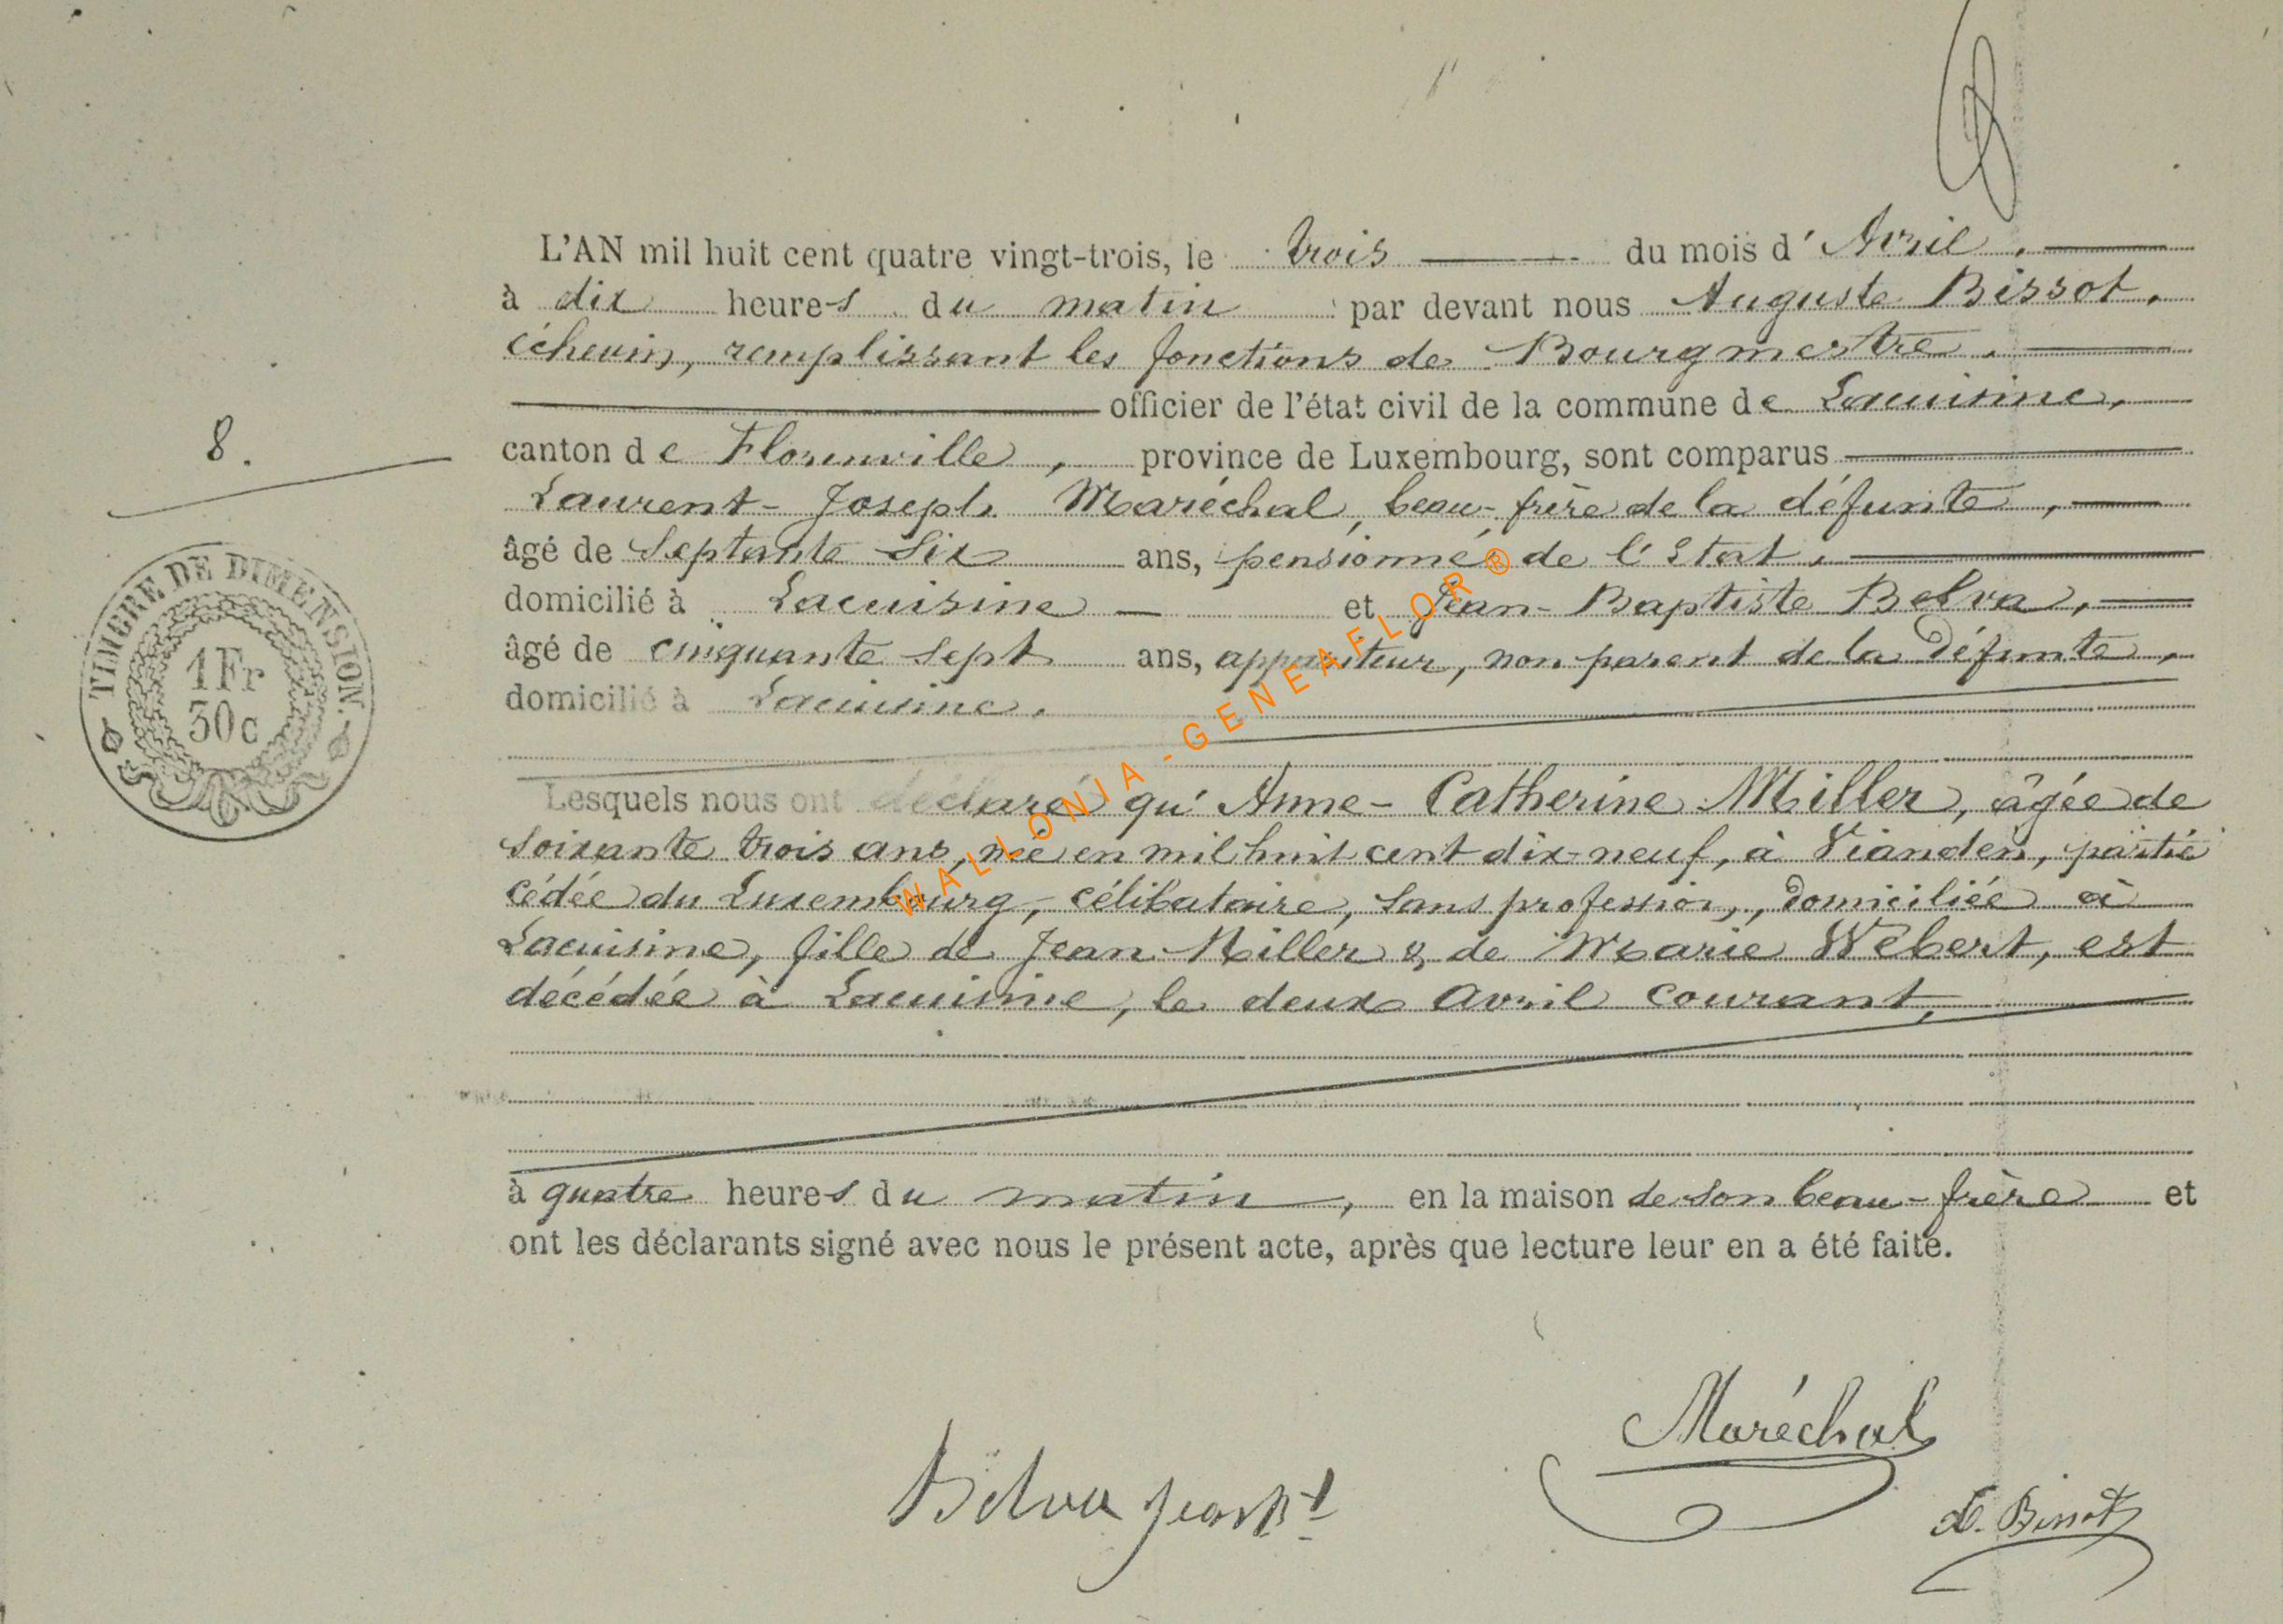 L'AN mil huit cent quatre vingt-trois, le trois du mois d'Avril.
à dix heures du matin par devant nous Auguste Bissot,
échevin, remplissant les fonctions de Bourgmestre.
officier de l'état civil de la commune de Lacuisine,
8.
canton de Florenville, province de Luxembourg, sont comparus
Laurent-Joseph Maréchal, beau-frère de la défunte,
âgé de septante six ans, pensionné de l'Etat,
domicilié à Lacuisine et Jean-Baptiste Belva,
âgé de cinquante sept ans, appariteur, non parent de la défunte,
domicilié à Lacuisine.
TIMBRE DE DIMENSION.
1Fr
30c
Lesquels nous ont déclaré qu'Anne-Catherine Miller, âgée de
soixante trois ans, née en mil huit cent dix-neuf, à Vianden, partie
cédée du Luxembourg, célibataire, sans profession, domiciliée à
Lacuisine, fille de Jean Miller & de Marie Webert, est
décédée à Lacuisine, le deux Avril courant,
à quatre heures du matin, en la maison de son beau-frère et
ont les déclarants signé avec nous le présent acte, après que lecture leur en a été faite.
Maréchal
Belva Jean Bt
A. Bissot
WALLONIA-GENEAFLOR®